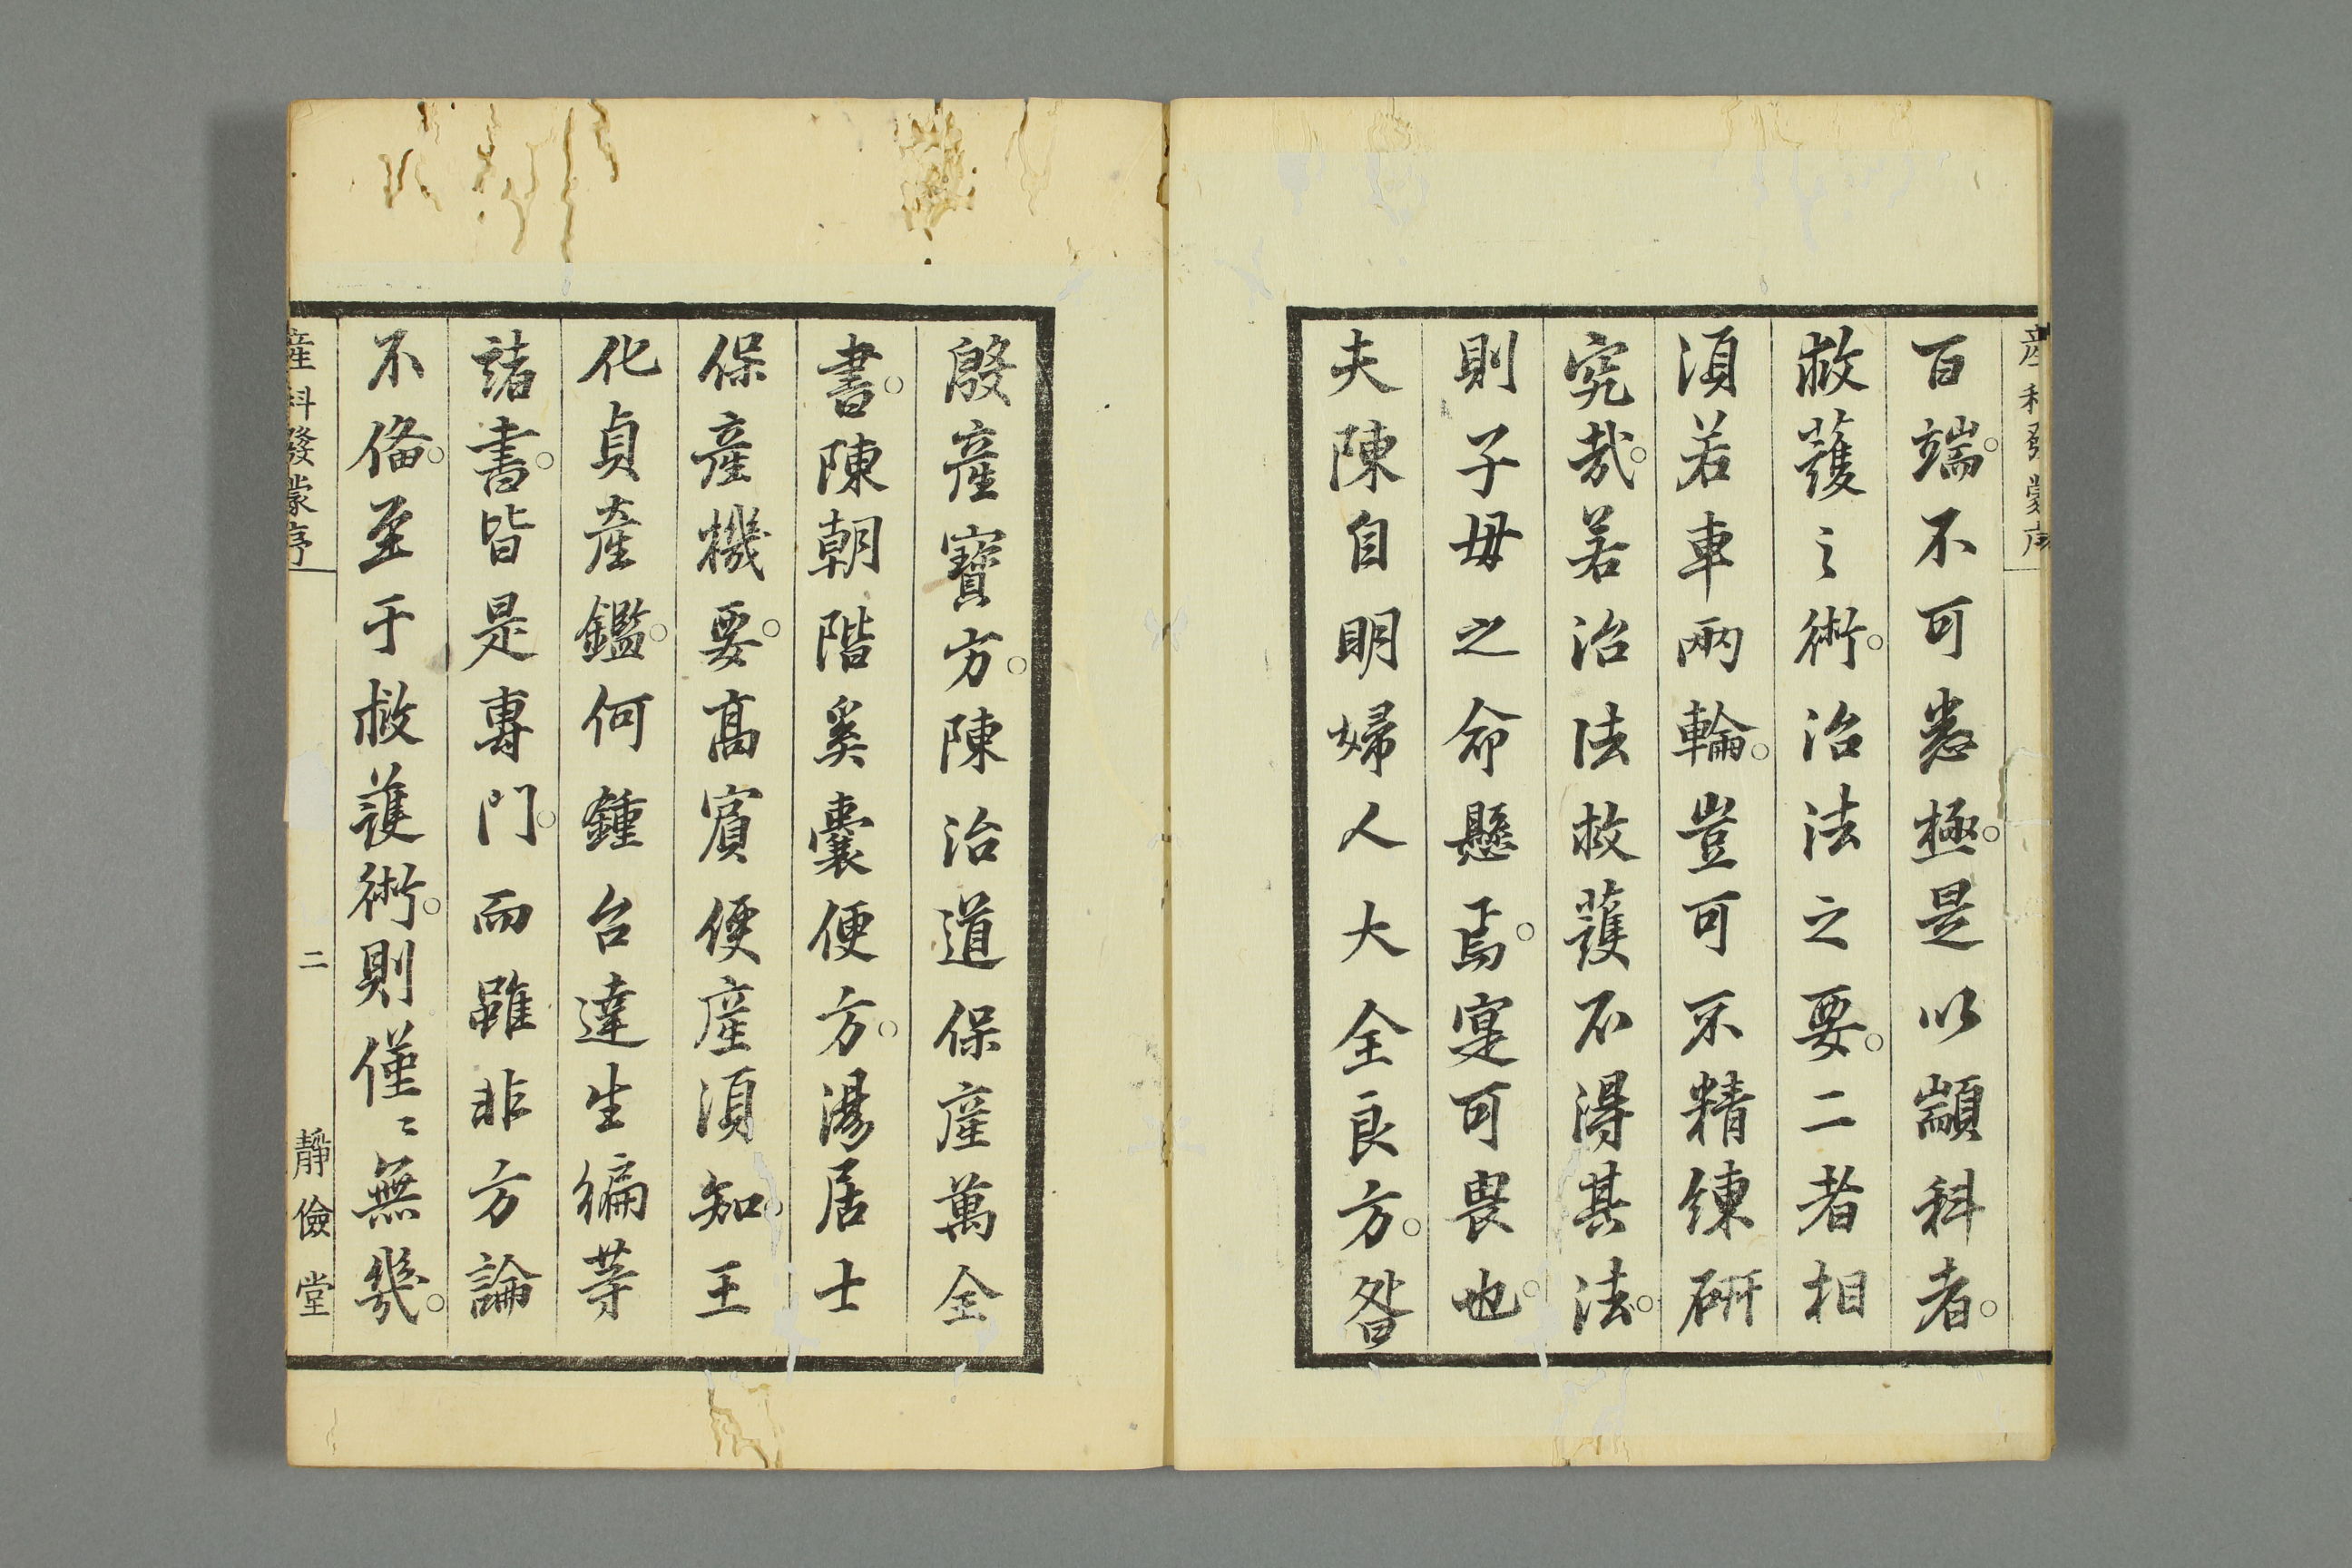 産科發蒙序
百端。不可悉極。是以顓科者。
救護之術。治法之要。二者相
須若車兩輪。豈可不精練研
究哉。若治法救護不得其法。
則子母之命懸焉。寔可畏也。
夫陳自明婦人大全良方。昝
殷産寶方。陳治道保産萬全
書。陳朝階奚囊便方。湯居士
保産機要。高賓便産須知。王
化貞産鑑。何鍾台達生編等
諸書。皆是專門。而雖非方論
不備。至于救護術。則僅〻無幾。
産科發蒙序
二
靜儉堂